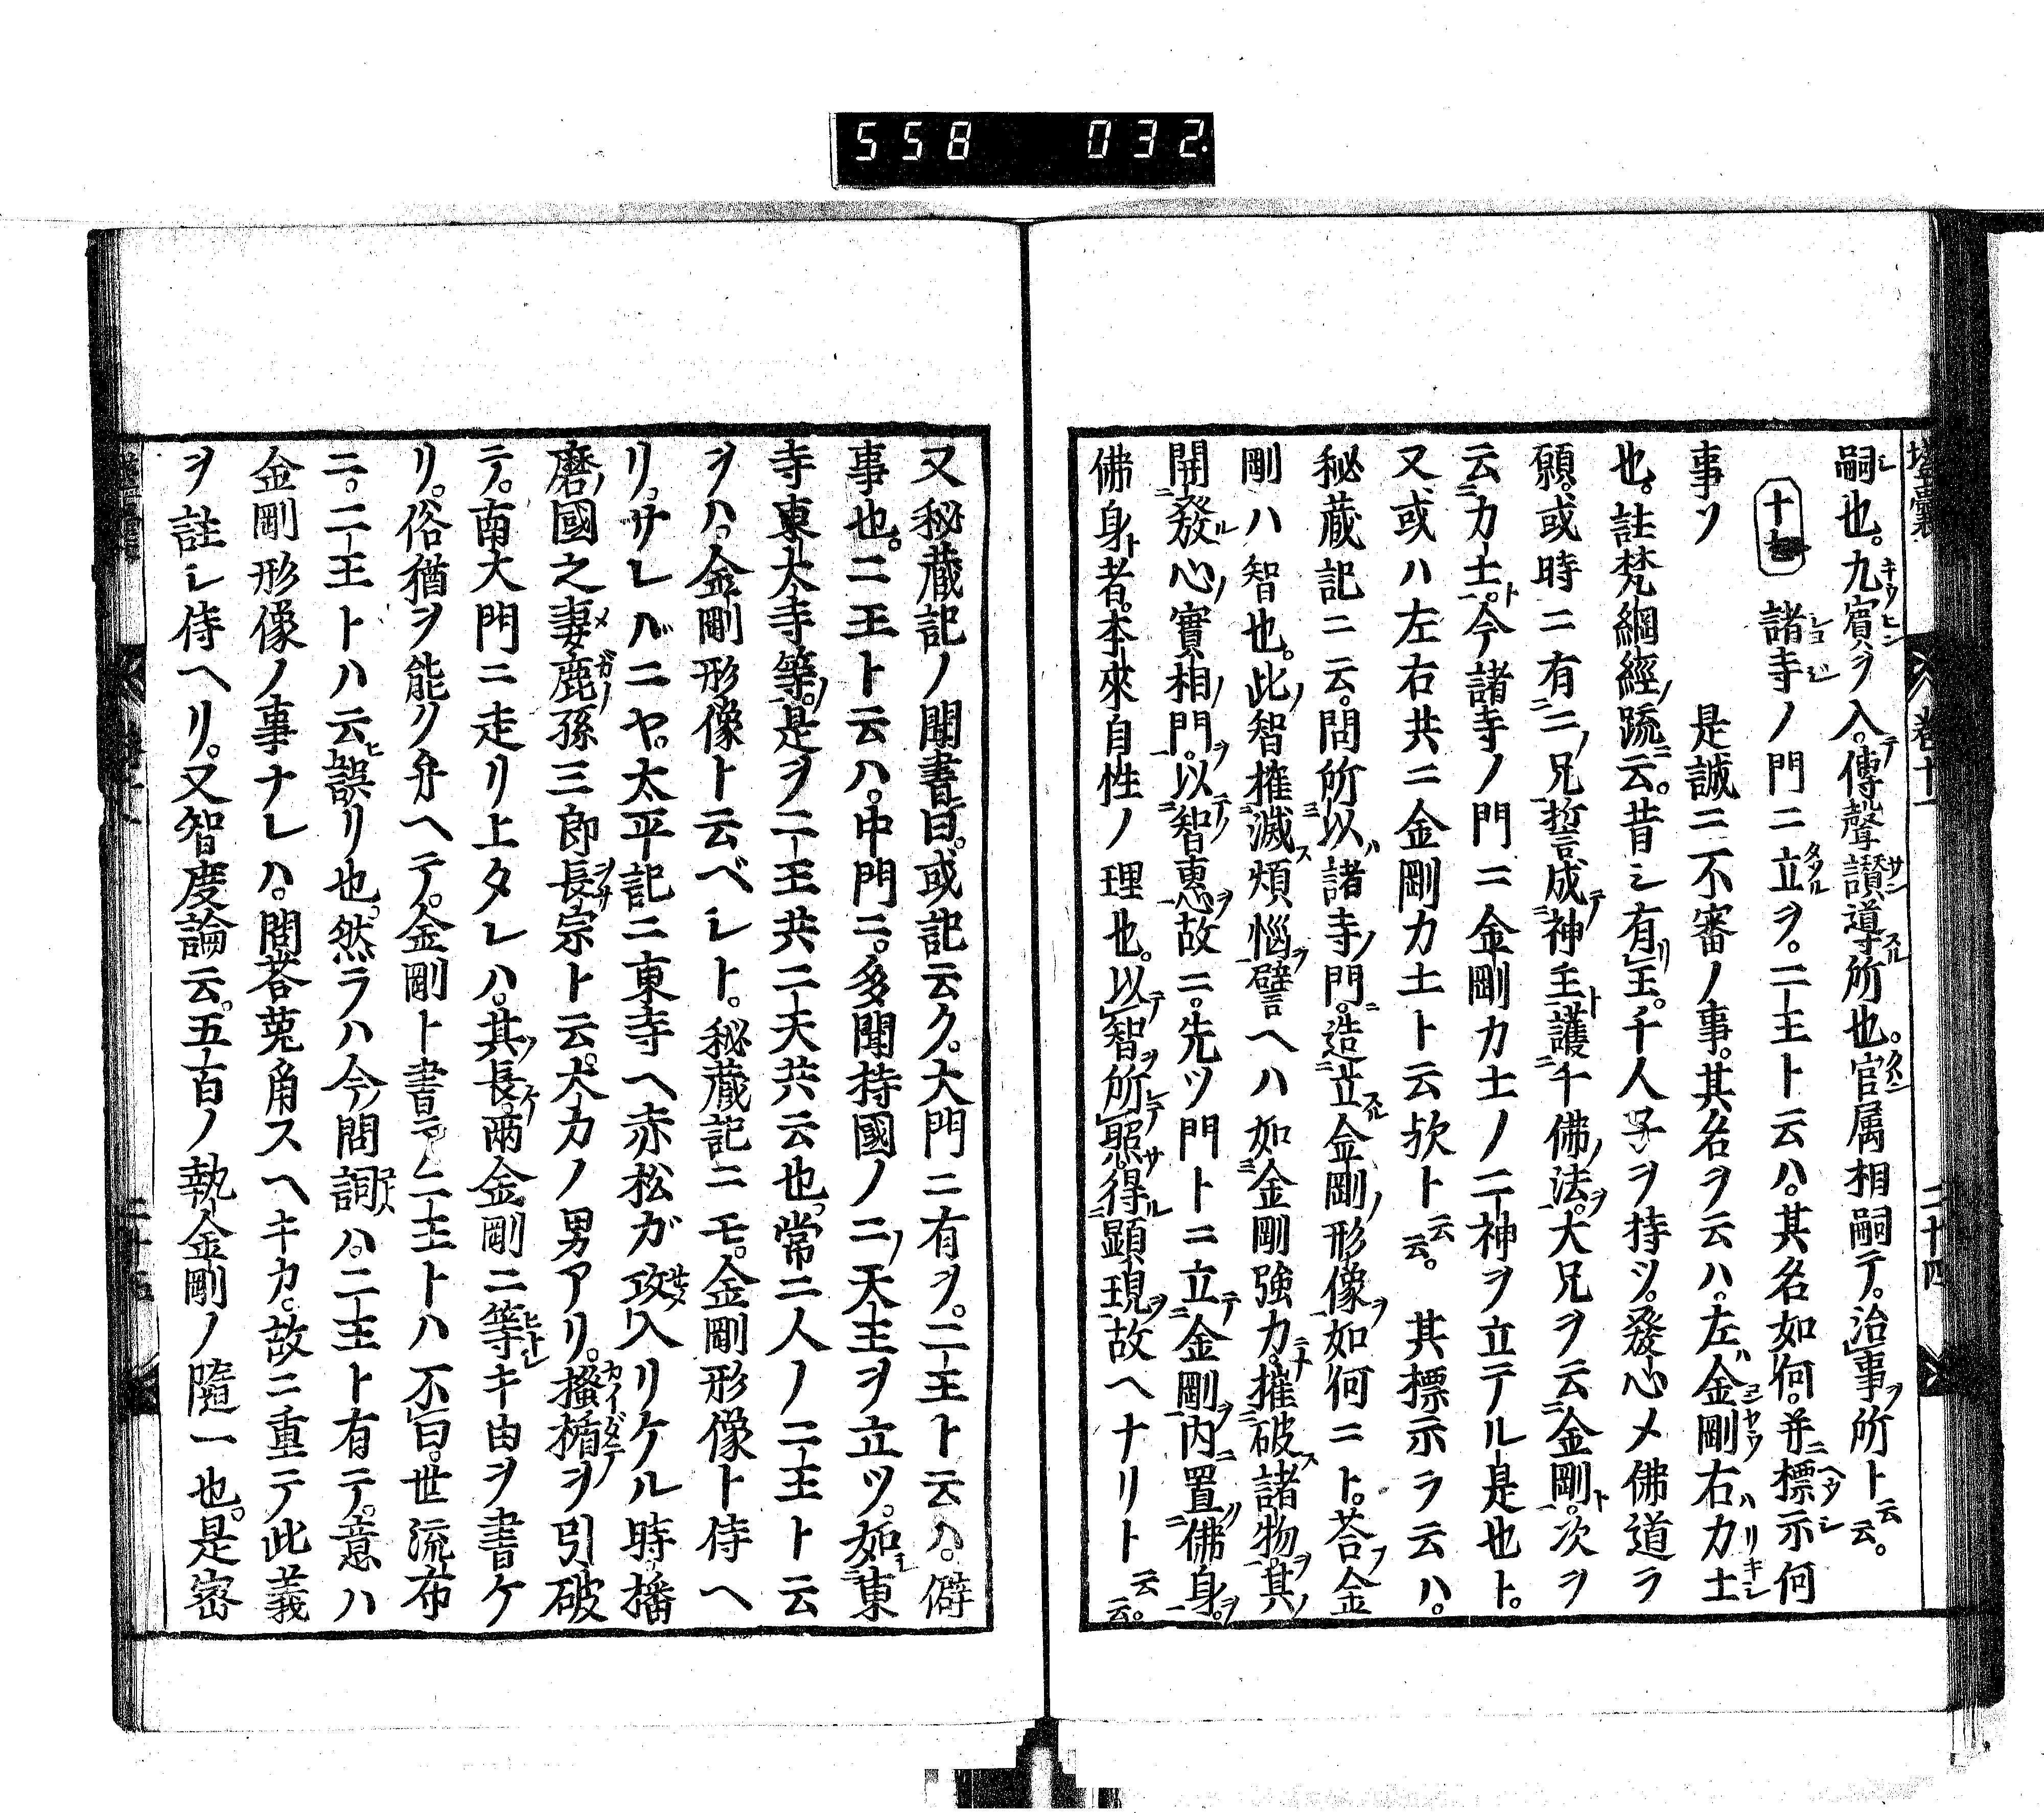 558 032
壒囊 卷十一 二十四
嗣也。九賓ヲ入テ傳聲讃導スル所也。官属相嗣テ。治事ヲ所ト云云。
諸寺ノ門ニ立ルヲ。二王ト云ハ。其名如何。并ニ標示何
事ソ 是誠ニ不審ノ事。其名ヲ云ハ。左ハ金剛右ハ力士
也。註梵綱經ノ䟽ニ云。昔シ有リ王。千人子ヲ持ツ。發心メ佛道ヲ
願。或時ニ有二ノ兄。誓成テ神王ト護千佛ノ法ヲ。大兄ヲ云金剛ト。次ヲ
云力士ト。今諸寺ノ門ニ金剛力士ノ二神ヲ立テル是也ト。
又或ハ左右共ニ金剛力士ト云歟ト云云。 其標示ヲ云ハ。
秘蔵記ニ云。問所以ハ諸寺ノ門ニ。造立スル金剛ノ形像ヲ如何ニト。荅フ金
剛ハ智也。此ノ智摧滅ス煩惱ヲ譬ヘハ如金剛強力ニテ。摧破ス諸物ヲ其ノ
開發ル心ノ實相ノ門ヲ。以テノ智惠ヲ故ニ。先ツ門トニ立テ金剛ヲ内ニ置ク佛身ヲ。
佛身ト者。本來自性ノ理也。以テ智ヲ所レテ照サ得ル顯現ヲ故ヘナリト云云。
又秘蔵記ノ聞書ニ曰。或記云ク。大門ニ有ヲ。二王ト云ハ。僻
事也。二王ト云ハ。中門ニ。多聞持國ノ二ノ天王ヲ立ツ。如シ東
寺東大寺等ノ。是ヲ二王共二天共云也。常二人ノ二王ト云
ヲハ。金剛形像ト云ベレト。秘蔵記ニモ。金剛形像ト侍ヘ
リ。サレバニヤ。太平記ニ東寺ヘ赤松ガ攻入リケル時播
磨ノ國之妻鹿孫三郎長宗ト云。大力ノ男アリ。搔楯ヲ引破
テ。南大門ニ走リ上タレハ。其ノ長ケ兩金剛ニ等キ由ヲ書ケ
リ。俗猶ヲ能ク弁ヘテ。金剛ト書テ二王トハ不曰。世流布
ニ。二王トハ云ヒ誤リ也。然ラハ今ノ問詞ハ。二王ト有テ。意ハ
金剛形像ノ事ナレハ。問荅菟角スヘキカ。故ニ重テ此義
ヲ註レ侍ヘリ。又智度論云。五百ノ執金剛ノ隨一也。是密